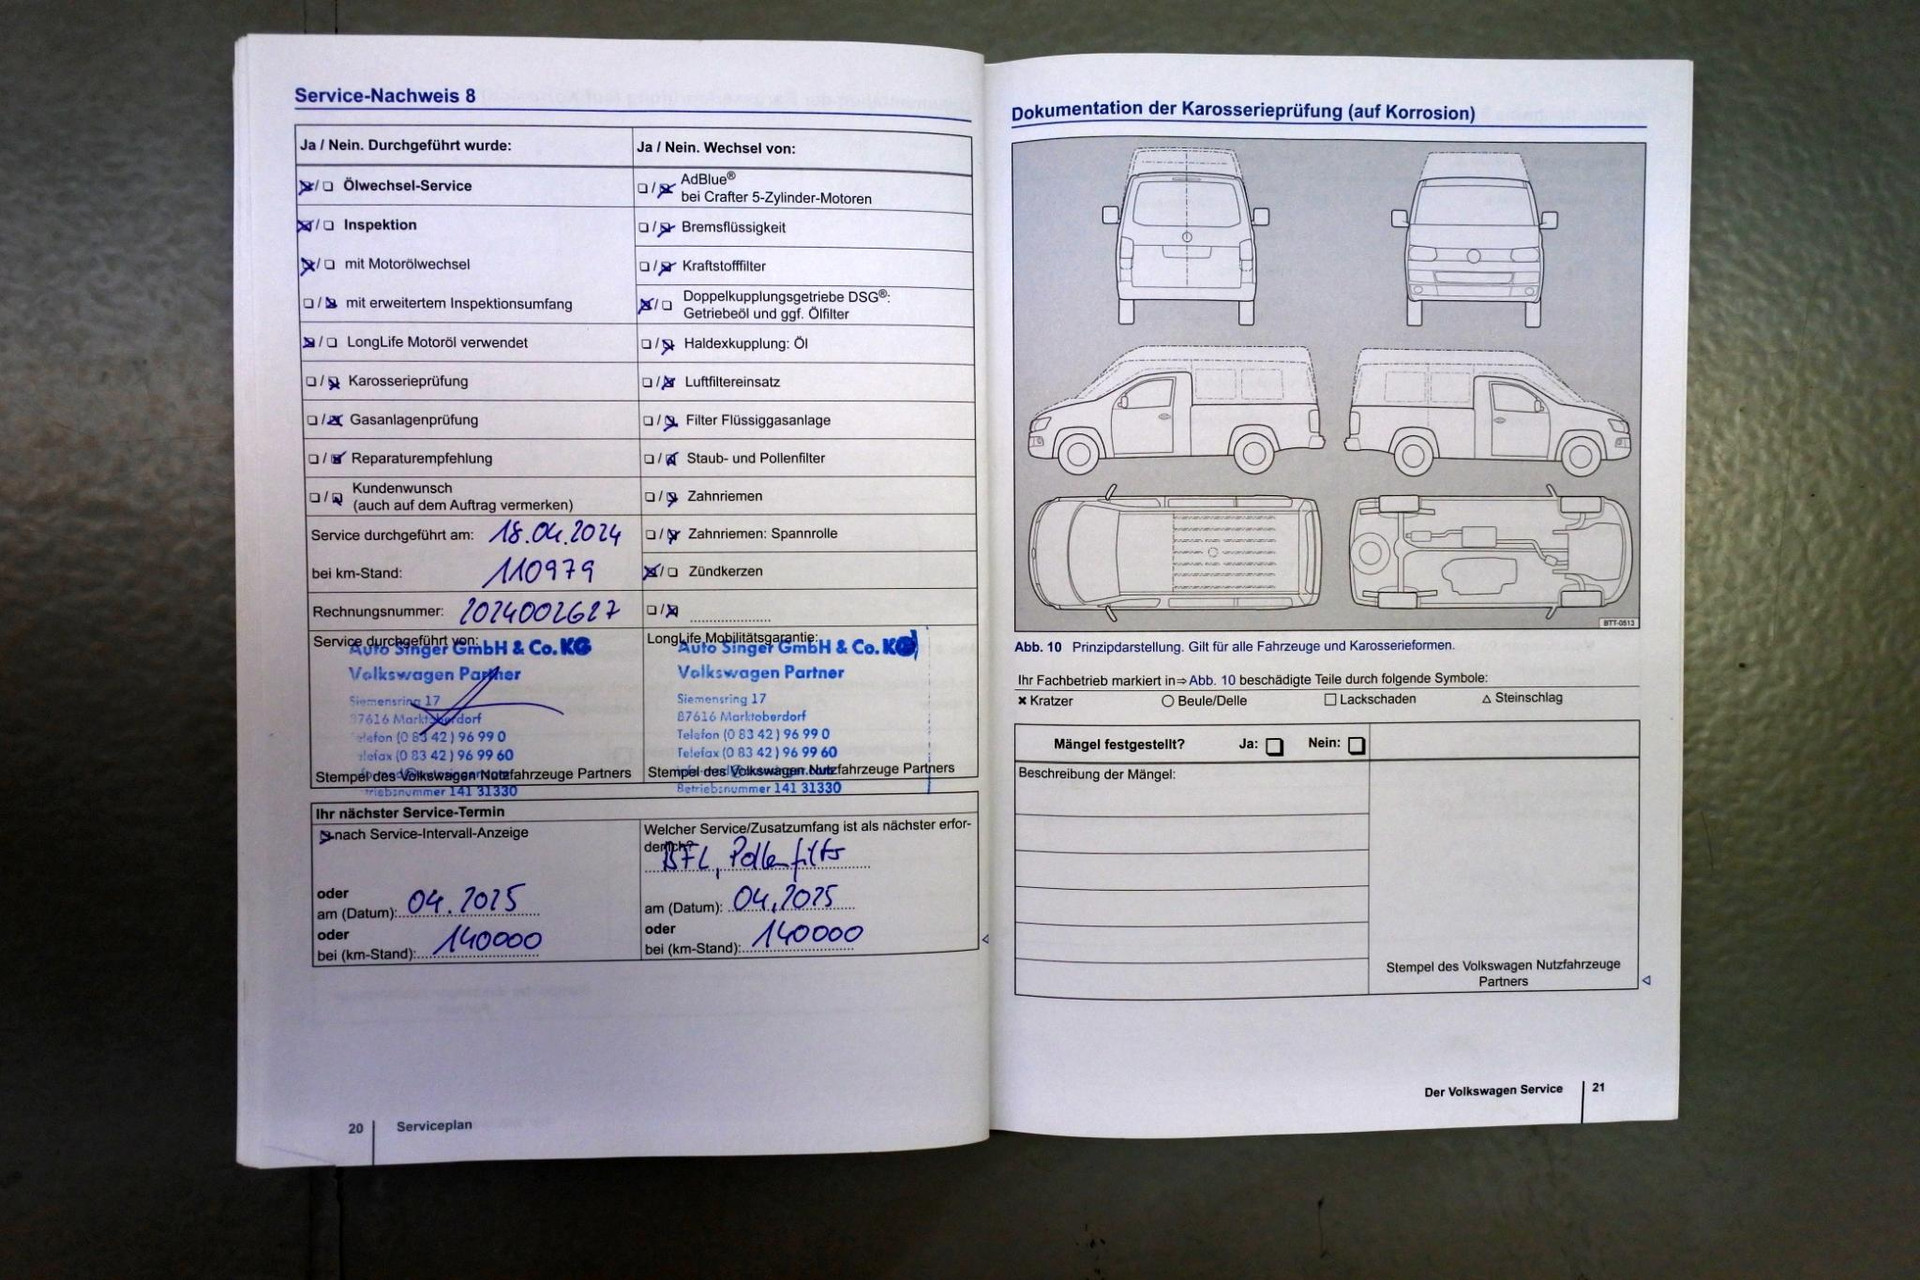 Service-Nachweis 8
Ja / Nein. Durchgeführt wurde:
Ölwechsel-Service
Inspektion
mit Motorölwechsel
mit erweitertem Inspektionsumfang
LongLife Motoröl verwendet
Karosserieprüfung
Gasanlagenprüfung
Reparaturempfehlung
Kundenwunsch
(auch auf dem Auftrag vermerken)
Service durchgeführt am: 18.04.2024
bei km-Stand: 110979
Rechnungsnummer: 2024002627
Service durchgeführt von:
Auto Singer GmbH & Co. KG
Volkswagen Partner
Siemensring 17
87616 Marktoberdorf
Telefon (0 83 42) 96 99 0
Telefax (0 83 42) 96 99 60
Stempel des Volkswagen Nutzfahrzeuge Partners
Betriebsnummer 141 31330
Ja / Nein. Wechsel von:
AdBlue®
bei Crafter 5-Zylinder-Motoren
Bremsflüssigkeit
Kraftstofffilter
Doppelkupplungsgetriebe DSG®:
Getriebeöl und ggf. Ölfilter
Haldexkupplung: Öl
Luftfiltereinsatz
Filter Flüssiggasanlage
Staub- und Pollenfilter
Zahnriemen
Zahnriemen: Spannrolle
Zündkerzen
LongLife Mobilitätsgarantie:
Auto Singer GmbH & Co. KG
Volkswagen Partner
Siemensring 17
87616 Marktoberdorf
Telefon (0 83 42) 96 99 0
Telefax (0 83 42) 96 99 60
Stempel des Volkswagen Nutzfahrzeuge Partners
Betriebsnummer 141 31330
Ihr nächster Service-Termin
nach Service-Intervall-Anzeige
oder
am (Datum): 04.2025
oder
bei (km-Stand): 140000
Welcher Service/Zusatzumfang ist als nächster erfor-
derlich?
BFL, Pollenfilter
am (Datum): 04.2025
oder
bei (km-Stand): 140000
20 Serviceplan
Dokumentation der Karosserieprüfung (auf Korrosion)
BTT-0513
Abb. 10 Prinzipdarstellung. Gilt für alle Fahrzeuge und Karosserieformen.
Ihr Fachbetrieb markiert in ⇒ Abb. 10 beschädigte Teile durch folgende Symbole:
Kratzer Beule/Delle Lackschaden Steinschlag
Mängel festgestellt? Ja: Nein:
Beschreibung der Mängel:
Stempel des Volkswagen Nutzfahrzeuge
Partners
Der Volkswagen Service 21